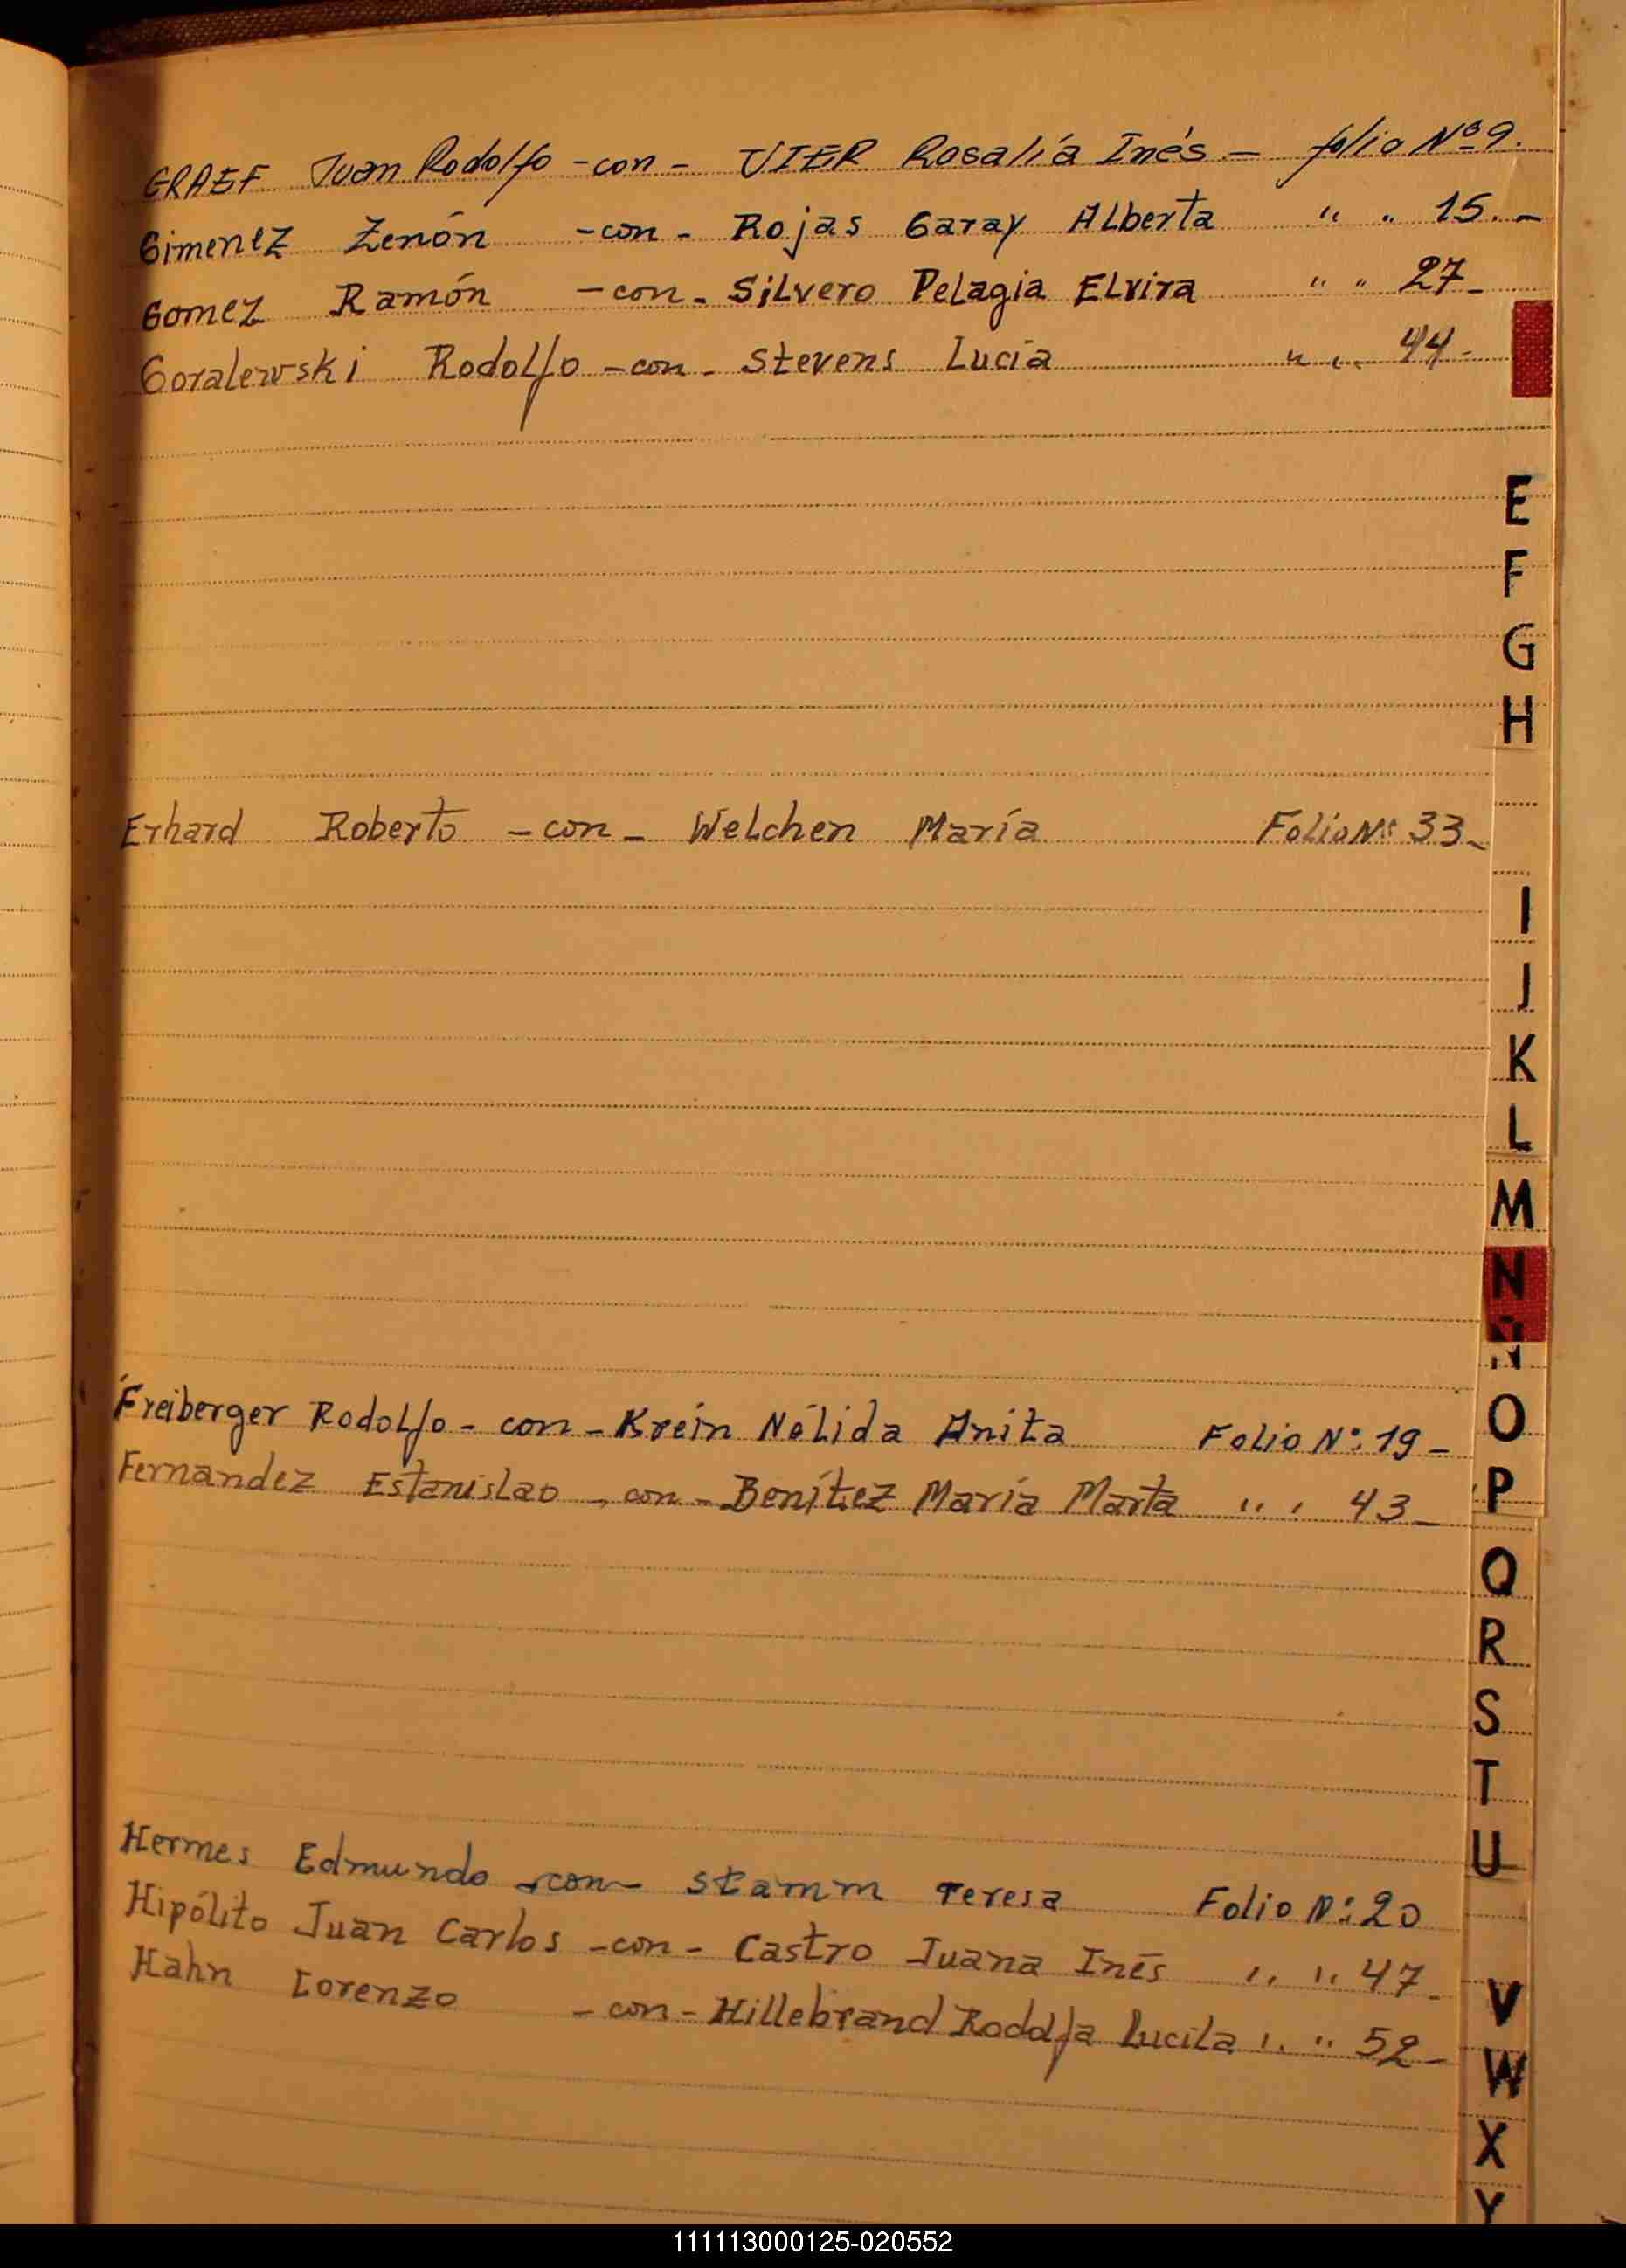 GRAEF Juan Rodolfo - con - UIER Rosalía Inés - folio Nº 9.
Gimenez Zenón - con - Rojas Garay Alberta " " 15. -
Gomez Ramón - con - Silvero Pelagia Elvira " " 27 -
Goralewski Rodolfo - con - Stevens Lucía " " 44 -
E
F
G
H
Erhard Roberto - con - Welchen María Folio Nº 33 -
I
J
K
L
M
N
Ñ
Freiberger Rodolfo - con - Krein Nélida Anita Folio Nº 19 -
O
Fernandez Estanislao - con - Benítez María Marta " " 43 -
P
Q
R
S
T
U
Hermes Edmundo - con - Stamm Teresa Folio Nº 20
Hipólito Juan Carlos - con - Castro Juana Inés " " 47 -
Hahn Lorenzo - con - Hillebrand Rodolfa Lucila " " 52 -
V
W
X
Y
111113000125-020552